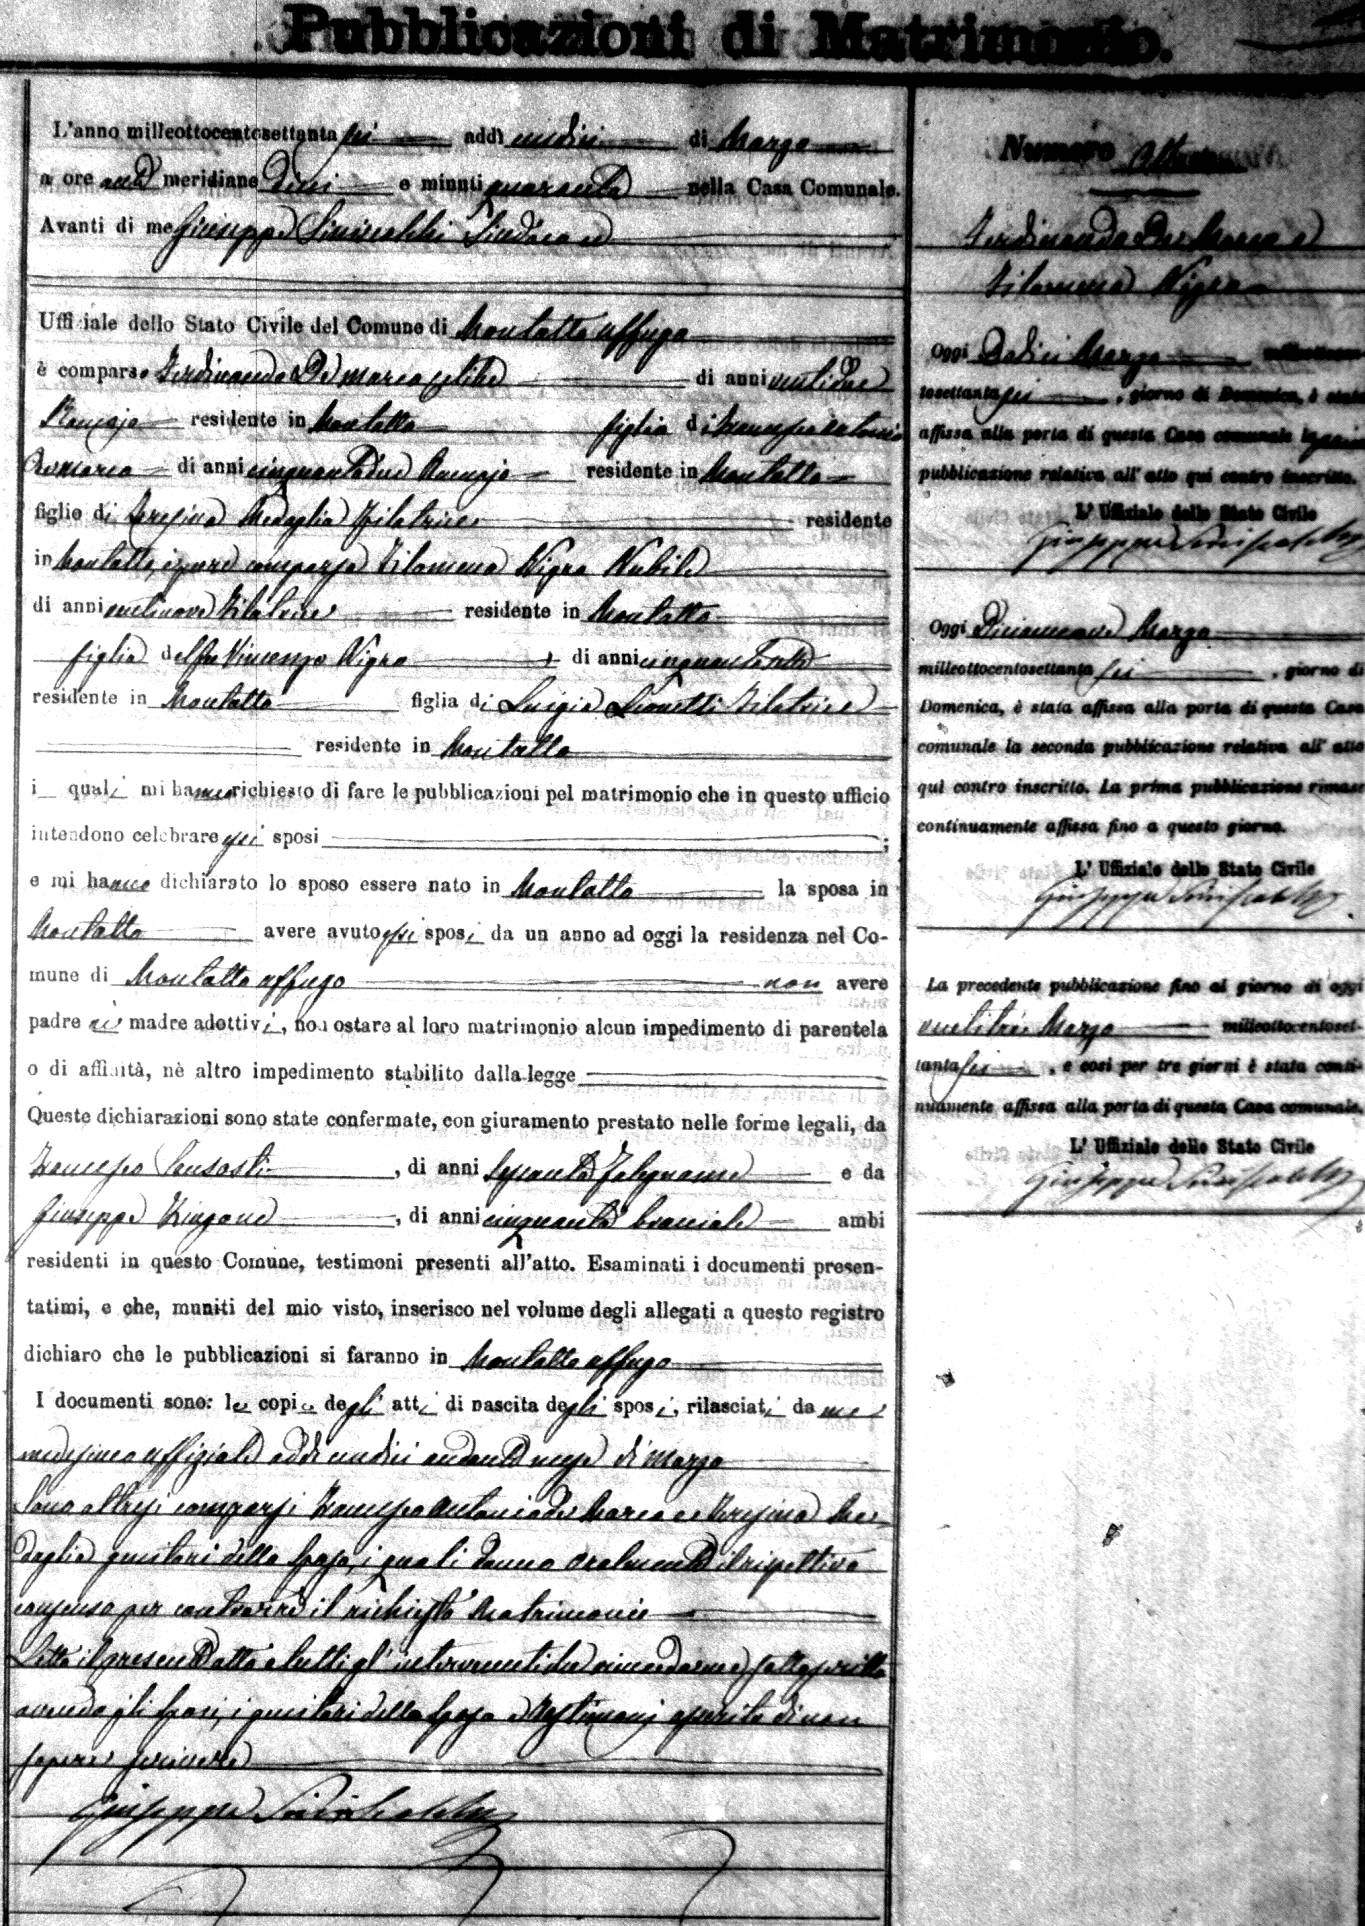 Pubblicazioni di Matrimonio.
L'anno milleottocentosettanta sei addì undici di Marzo
a ore anti meridiane dieci e minuti quaranta nella Casa Comunale.
Avanti di me Giuseppe Siniscalchi Sindaco ed
Uffiziale dello Stato Civile del Comune di Montalto uffugo
è comparso Ferdinando De Marco celibe di anni ventidue
residente in Montalto figlio di Francesco Antonio
De Marco di anni cinquantadue residente in Montalto
figlio di Teresina Medaglia filatrice residente
in Montalto, e pure comparsa Filomena Nigro Nubile
di anni ventinove filatrice residente in Montalto
figlia del fu Vincenzo Nigro di anni
residente in Montalto figlia di Luigia Lionetti filatrice
residente in Montalto
i quali mi hanno richiesto di fare le pubblicazioni pel matrimonio che in questo ufficio
intendono celebrare essi sposi ;
e mi hanno dichiarato lo sposo essere nato in Montalto la sposa in
Montalto avere avuto essi sposi da un anno ad oggi la residenza nel Co-
mune di Montalto uffugo non avere
padre nè madre adottivi, non ostare al loro matrimonio alcun impedimento di parentela
o di affinità, nè altro impedimento stabilito dalla legge
Queste dichiarazioni sono state confermate, con giuramento prestato nelle forme legali, da
Francesco Sansosti, di anni sessanta falegname e da
Giuseppe, di anni cinquanta bracciale ambi
residenti in questo Comune, testimoni presenti all'atto. Esaminati i documenti presen-
tatimi, e che, muniti del mio visto, inserisco nel volume degli allegati a questo registro
dichiaro che le pubblicazioni si faranno in Montalto uffugo
I documenti sono: le copie degli atti di nascita degli sposi, rilasciati da me
medesimo uffiziale addì undici andante mese di Marzo
Sono altresì comparsi Francesco Antonio de Marco e Teresina Me-
daglia genitori dello sposo, i quali danno oralmente il rispettivo
consenso per contrarre il richiesto Matrimonio
Letto il presente atto a tutti gl' intervenuti sottoscritto
avendo gli sposi, i genitori dello sposo e testimoni asserito di non
sapere scrivere
Giuseppe Siniscalchi
Numero Ottavo
Ferdinando De Marco e
Filomena Nigro
Oggi Dodici Marzo milleottocen-
tosettanta sei, giorno di Domenica, è stata
affissa alla porta di questa Casa comunale la prima
pubblicazione relativa all' atto qui contro inscritto.
L' Uffiziale dello Stato Civile
Giuseppe Siniscalchi
Oggi Diciannove Marzo
milleottocentosettanta sei, giorno di
Domenica, è stata affissa alla porta di questa Casa
comunale la seconda pubblicazione relativa all' atto
quì contro inscritto. La prima pubblicazione rimase
continuamente affissa fino a questo giorno.
L' Uffiziale dello Stato Civile
Giuseppe Siniscalchi
La precedente pubblicazione fino al giorno di oggi
ventitrè Marzo milleottocentoset-
tanta sei, e così per tre giorni è stata conti-
nuamente affissa alla porta di questa Casa comunale.
L' Uffiziale dello Stato Civile
Giuseppe Siniscalchi